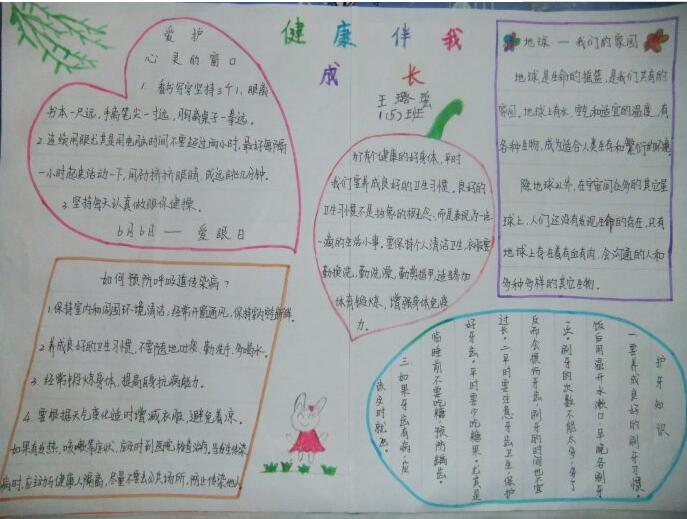 健康伴我
成长
王璐瑶
1(5)班
爱护
心灵的窗口
1. 看书写字坚持三个1,眼离
书本一尺远,手离笔尖一寸远,胸离桌子一拳远。
2.连续用眼尤其是用电脑时间不要超过两小时,最好每隔
一小时起来活动一下,闭行挤挤眼睛,或远眺几分钟。
3.坚持每天认真做眼保健操。
6月6日——爱眼日
为了有个健康的好身体,平时
我们要养成良好的卫生习惯。良好的
卫生习惯不是抽象的概念,而是表现为一点
一滴的生活小事。要保持个人清洁卫生,衣服要
勤换洗,勤洗澡,勤剪指甲,适当参加
体育锻炼、增强身体免疫
力。
地球——我们的家园
地球是生命的摇篮,是我们共有的
家园,地球上有水、空气和适宜的温度,有
各种生物,成为适合人类生存和繁衍的环境。
除地球以外,在宇宙间众多的其它星
球上,人们还没有发现生命的存在,只有
地球上存在着有血有肉,会沟通的人和
多种多样的其它生物。
如何预防呼吸道传染病?
1.保持室内和周围环境清洁,经常开窗通风,保持室内空气新鲜。
2.养成良好的卫生习惯,不要随地吐痰、勤洗手、多喝水。
3.经常锻炼身体,提高自身抗病能力。
4.要根据天气变化适时增减衣服,避免着凉。
如果有发热、咳嗽等症状,应及时到医院检查治疗。当发生传染
病时,应主动与健康人隔离,尽量不要去公共场所,防止传染他人
护牙知识
一要养成良好的刷牙习惯。
饭后用温开水漱口,早晚各刷牙
一次。刷牙的次数不能太多,多了
反而会损伤牙齿,刷牙的时间也不宜
过长。二平时要注意牙齿卫生,保护
好牙齿。平时要少吃糖果,尤其是
临睡前不要吃糖,预防龋齿。
三如果牙齿有病,应
该及时就医。